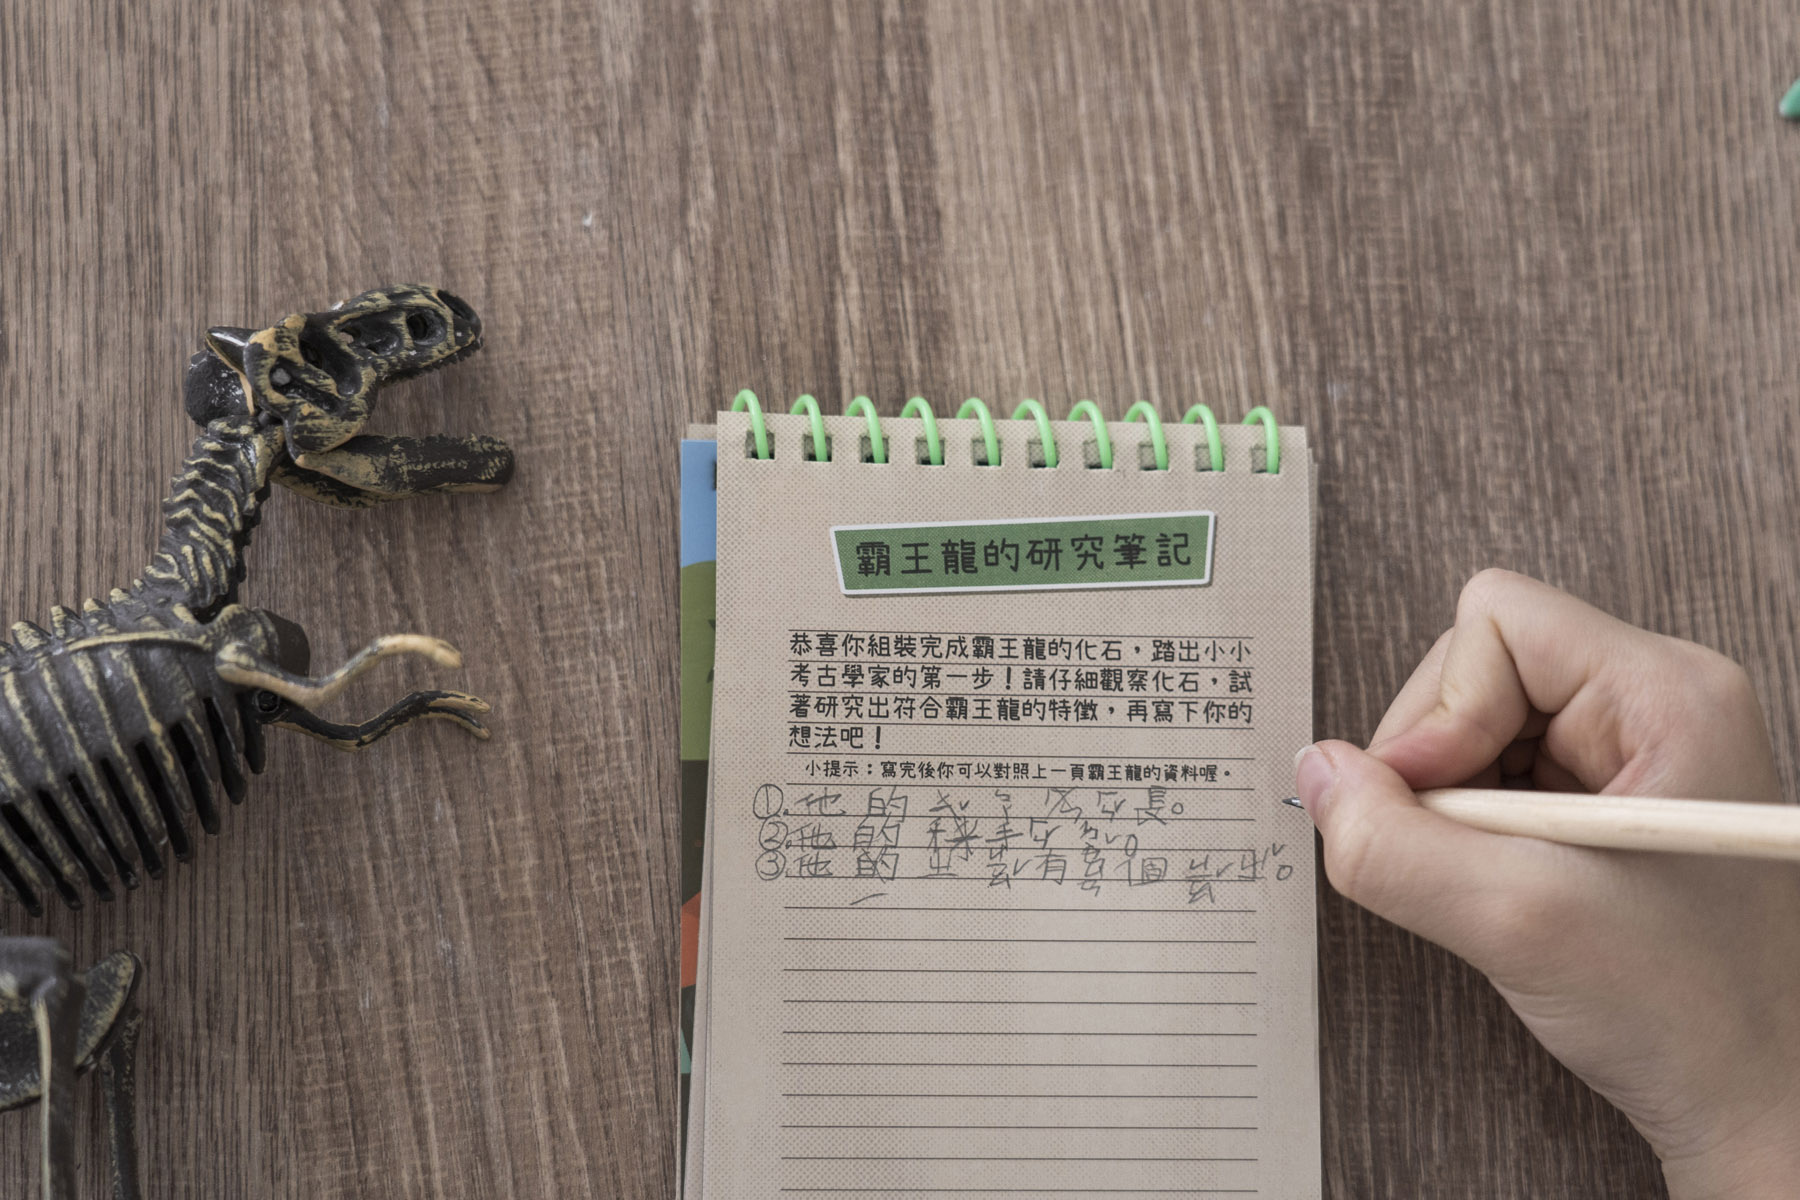 霸王龍的研究筆記
恭喜你組裝完成霸王龍的化石，踏出小小
考古學家的第一步！請仔細觀察化石，試
著研究出符合霸王龍的特徵，再寫下你的
想法吧！
小提示：寫完後你可以對照上一頁霸王龍的資料喔。
①.他的長。
②.他的手
③.他的有個